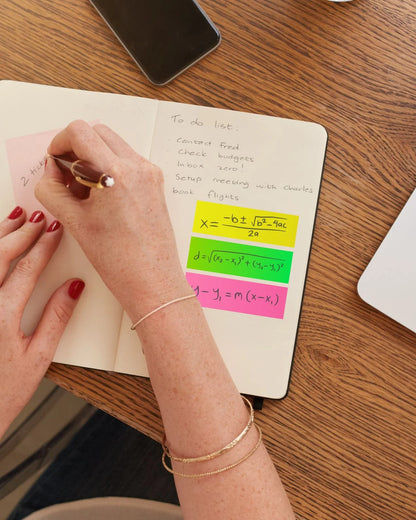 2
To do list:
Contact Fred
Check budgets
Inbox zero!
Setup meeting with Charles
book flights
x = -b ± √b² - 4ac / 2a
d = √(x₂ - x₁)² + (y₂ - y₁)²
y - y₁ = m (x - x₁)